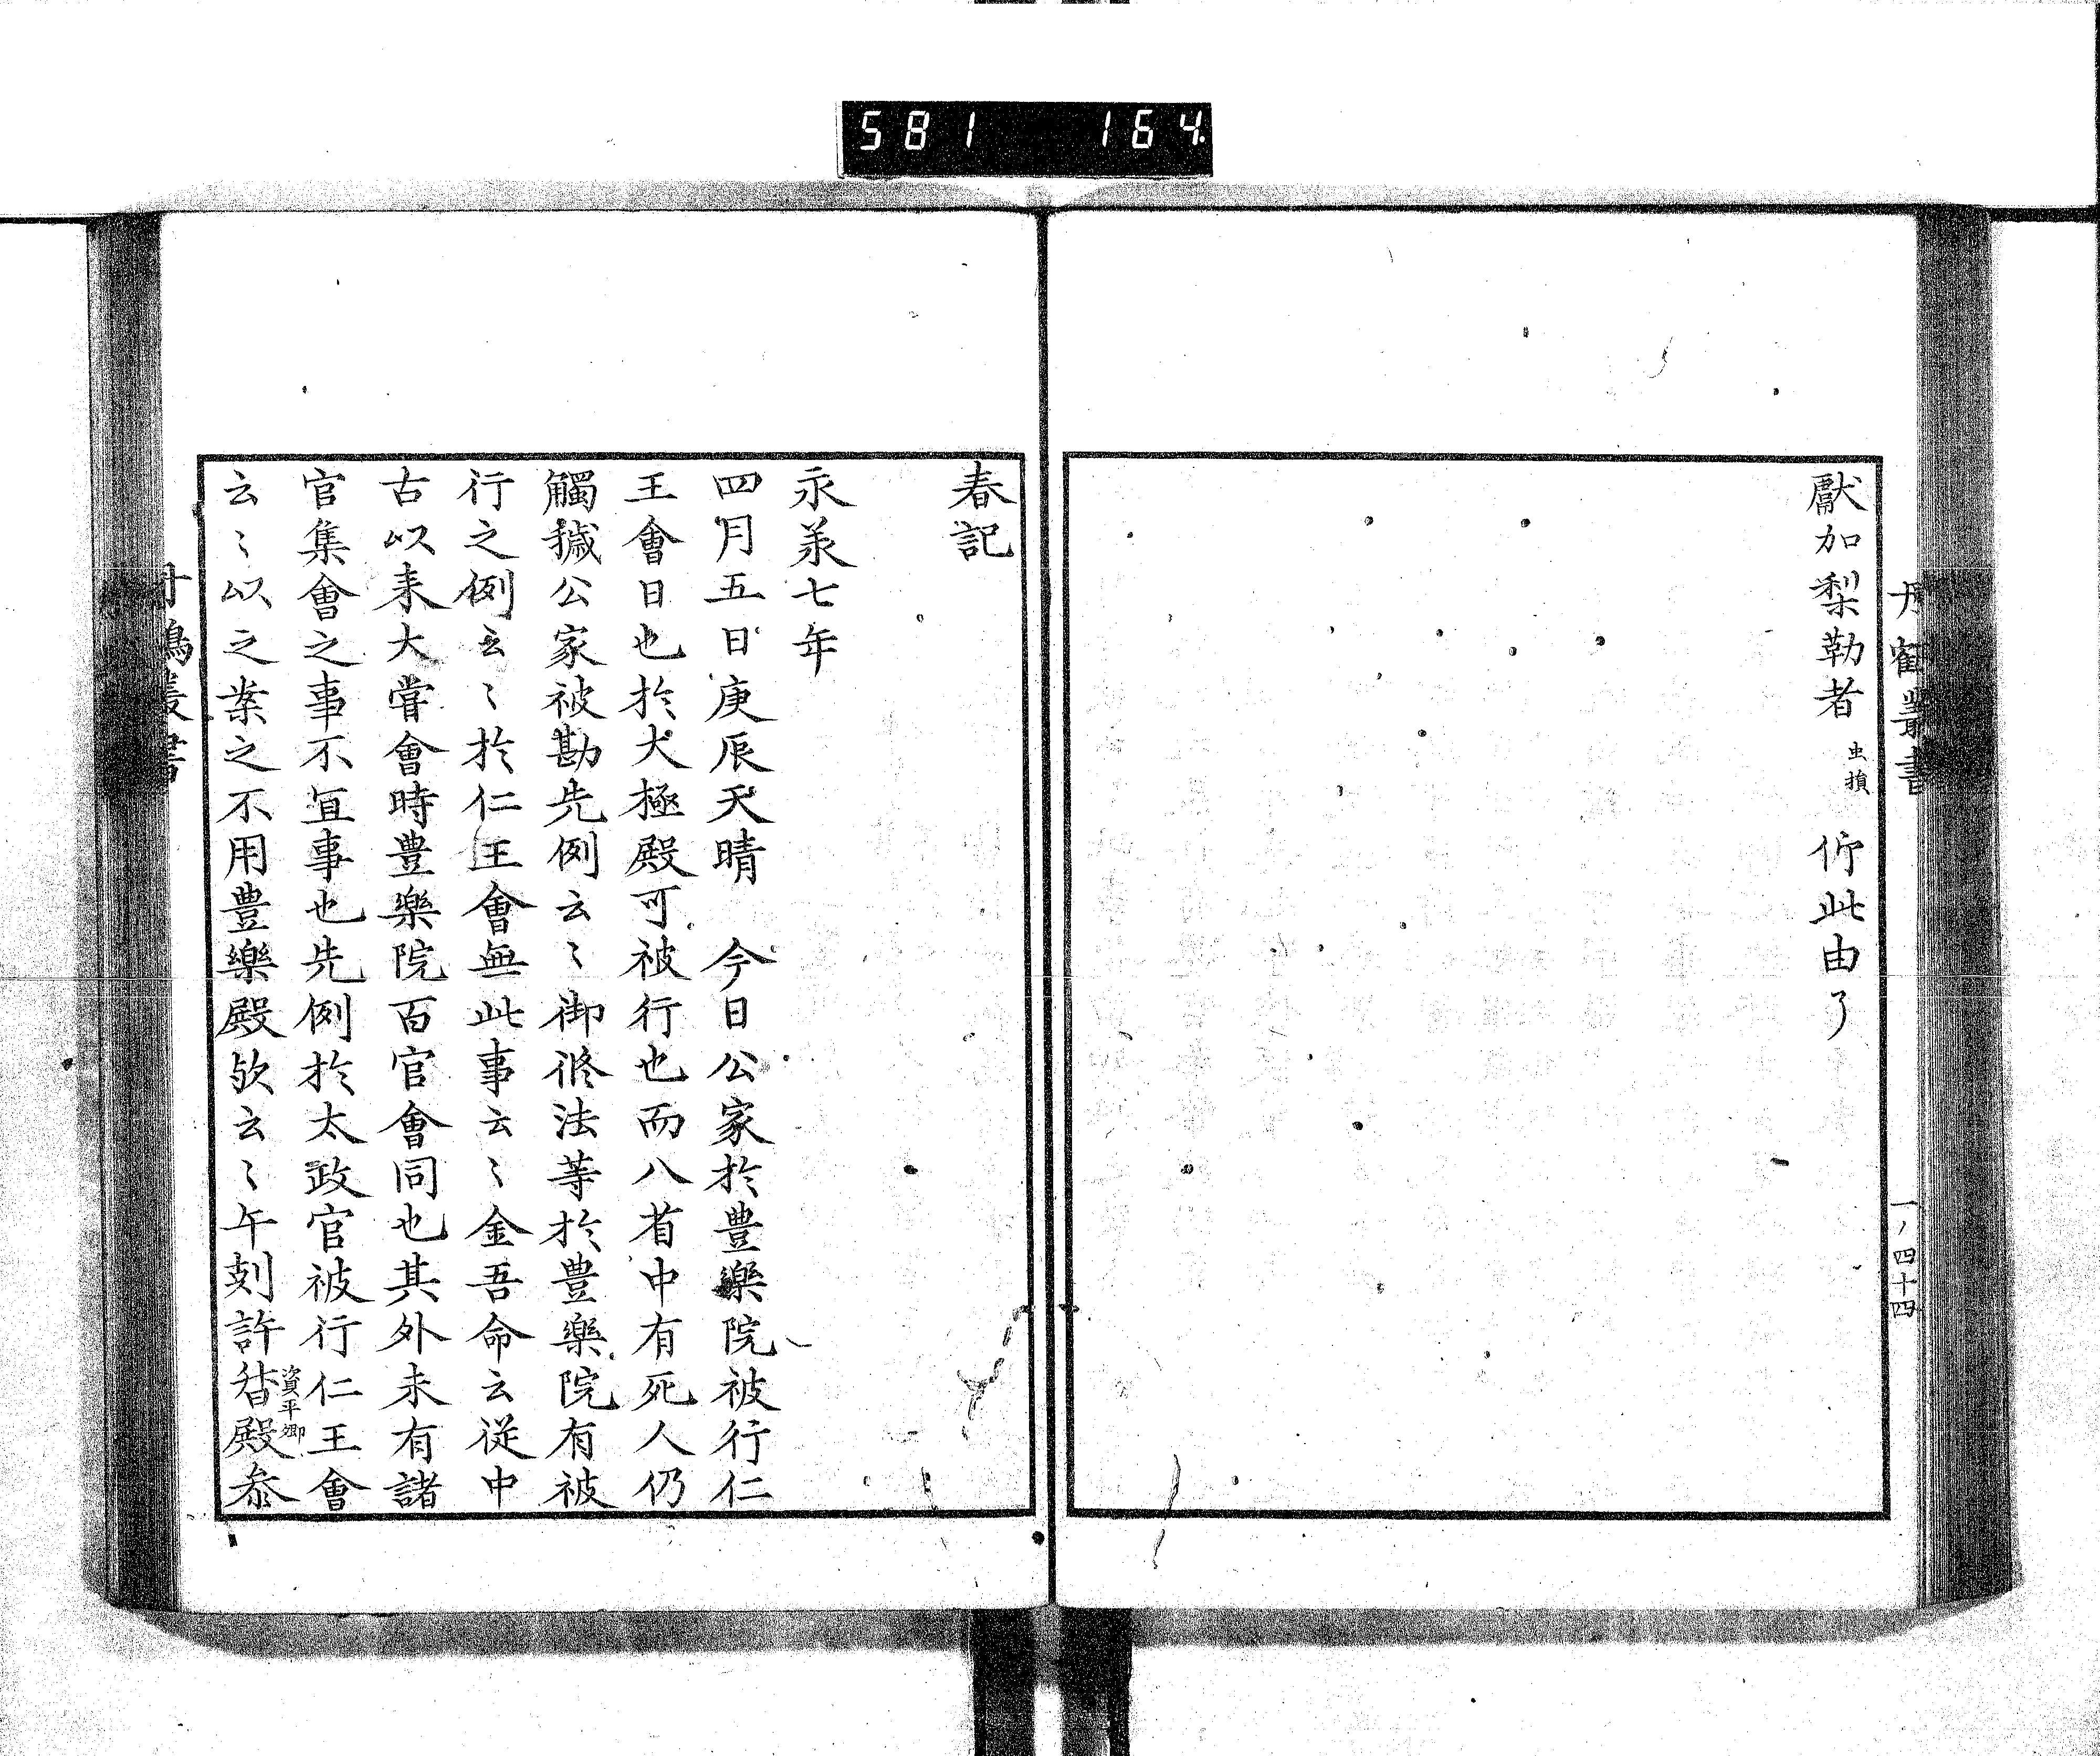 581 164
丹鶴叢書
一ノ四十四
獻加梨勒者 虫損 㐸此由了
春記
永羕七年
四月五日庚辰天晴 今日公家於豊樂院被行仁
王會日也於大極殿可被行也而八省中有死人仍
觸穢公家被勘先例云〻御修法等於豊樂院有被
行之例云〻於仁王會無此事云〻金吾命云從中
古以来大嘗會時豊樂院百官會同也其外未有諸
官集會之事不宜事也先例於太政官被行仁王會
云〻以之案之不用豊樂殿欤云〻午刻許督殿參
資平卿
丹鶴叢書